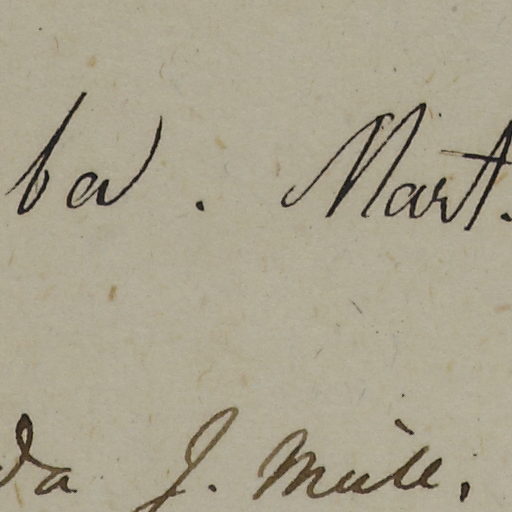 ba . Mart.
da J. Müll.